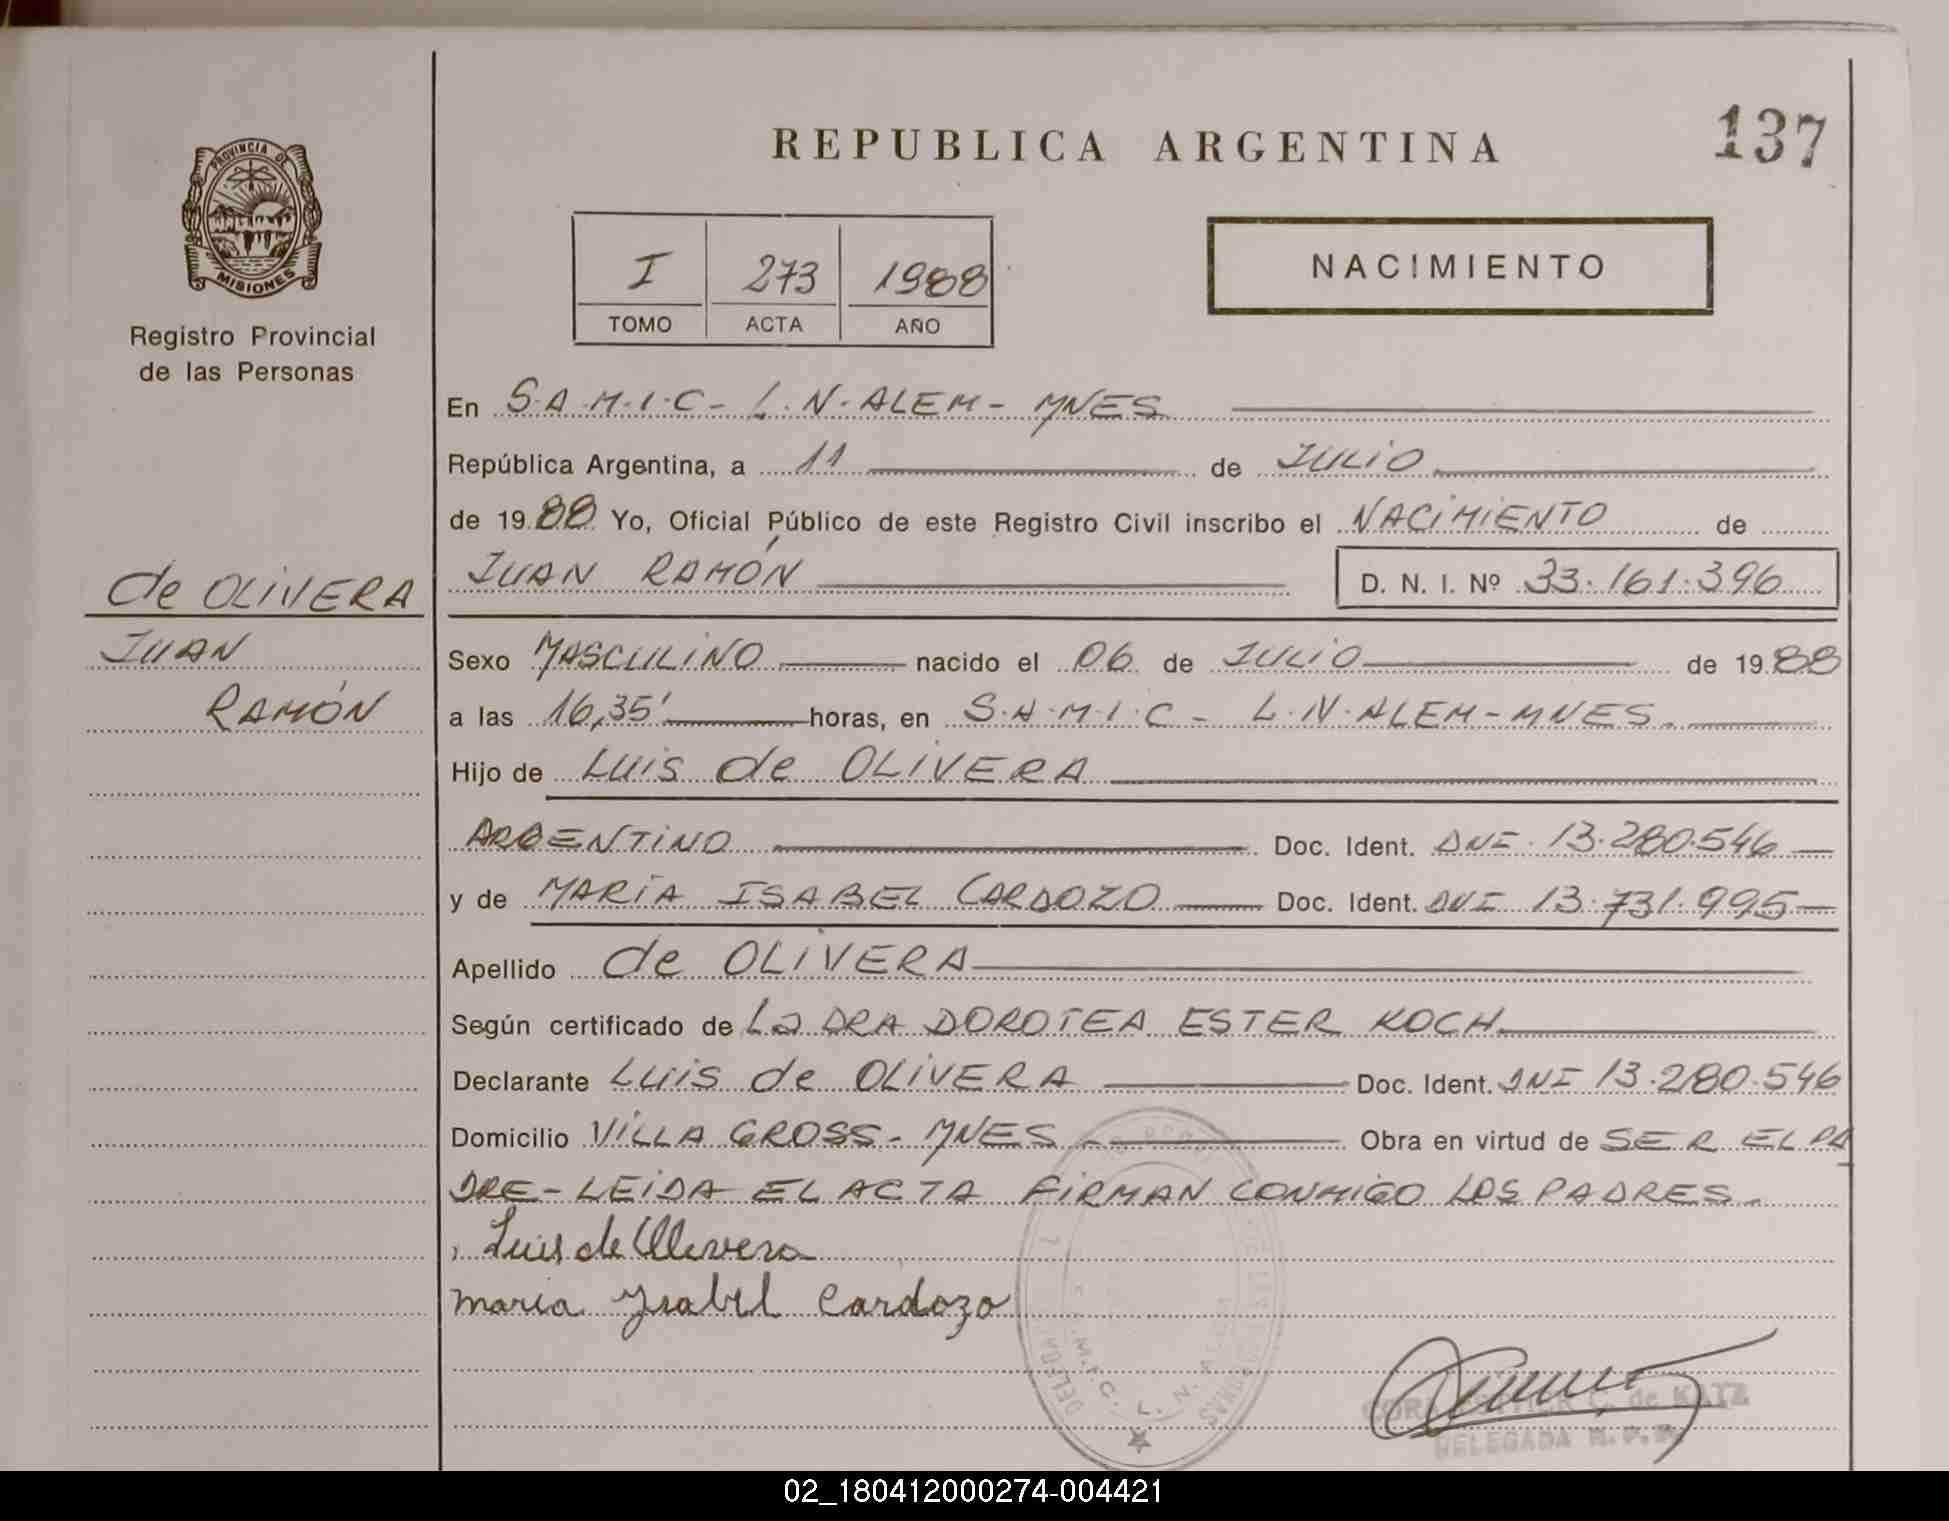 REPUBLICA ARGENTINA
137
PROVINCIA DE
MISIONES
Registro Provincial
de las Personas
I 273 1988
TOMO ACTA AÑO
NACIMIENTO
En S.A.M.I.C - L.N. ALEM - MNES
República Argentina, a 11 de JULIO
de 1988 Yo, Oficial Público de este Registro Civil inscribo el NACIMIENTO de
JUAN RAMÓN D. N. I. Nº 33.161.396
de OLIVERA
JUAN
RAMÓN
Sexo MASCULINO nacido el 06 de JULIO de 1988
a las 16,35' horas, en S.A.M.I.C - L.N. ALEM - MNES.
Hijo de LUIS de OLIVERA
ARGENTINO Doc. Ident. DNI. 13.280.546
y de MARÍA ISABEL CARDOZO Doc. Ident. DNI 13.731.995
Apellido de OLIVERA
Según certificado de La DRA DOROTEA ESTER KOCH
Declarante LUIS de OLIVERA Doc. Ident. DNI 13.280.546
Domicilio VILLA GROSS - MNES - Obra en virtud de SER EL PA
DRE - LEIDA EL ACTA FIRMAN CONMIGO LOS PADRES.
Luis de Olivera
maria Ysabel Cardozo
S.A.M.I.C. L.N. ALEM
C. de KATZ
DELEGADA R.P.P.
02_180412000274-004421